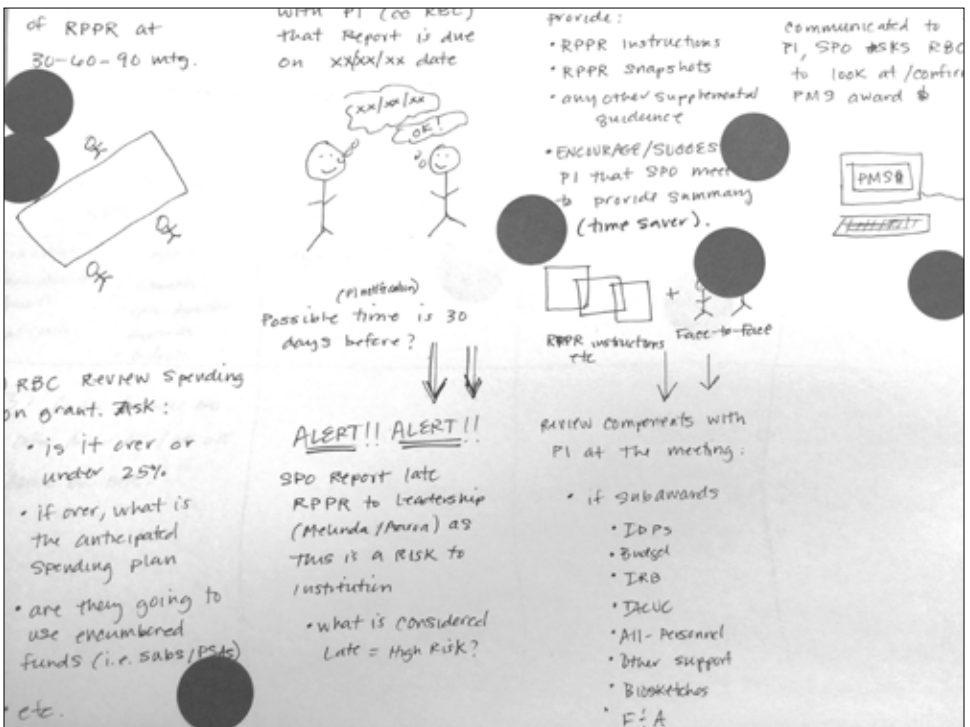 of RPPR at
30-60-90 mtg.
RBC Review Spending
on grant. Ask:
• is it over or
under 25%
• if over, what is
the anticipated
spending plan
• are they going to
use encumbered
funds (i.e. subs/PSAs)
• etc.
with PI (cc RBC)
that Report is due
on xx/xx/xx date
xx/xx/xx
OK!
(PI notification)
Possible time is 30
days before?
ALERT!! ALERT!!
SPO Report late
RPPR to Leadership
(Melinda /
as
This is a RISK to
institution
• what is considered
Late = High Risk?
provide:
• RPPR instructions
• RPPR Snapshots
• any other supplemental
guidance
• ENCOURAGE/
PI that SPO meet
to provide summary
(time saver).
+
RPPR instructions
etc
Face-to-Face
Review components with
PI at the meeting:
• if subawards
• IDPs
• Budget
• IRB
• IACUC
• All-Personnel
• Other support
• Biosketches
• F&A
communicated to
PI, SPO asks RBC
to look at/confirm
PMS award $
PMS